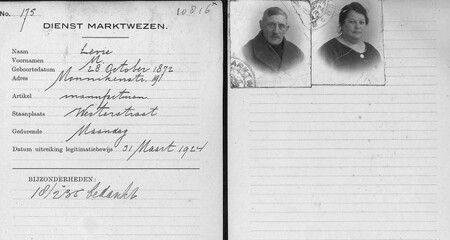 No. 175 10816
DIENST MARKTWEZEN.
Naam Levie
Voornamen M.
Geboortedatum 28 October 1872
Adres Monnikenstr. 19
Artikel manufacturen
Staanplaats Westerstraat
Gedurende Maandag
Datum uitreiking legitimatiebewijs 31 Maart 1924
BIJZONDERHEDEN:
18/2 35 bedankt